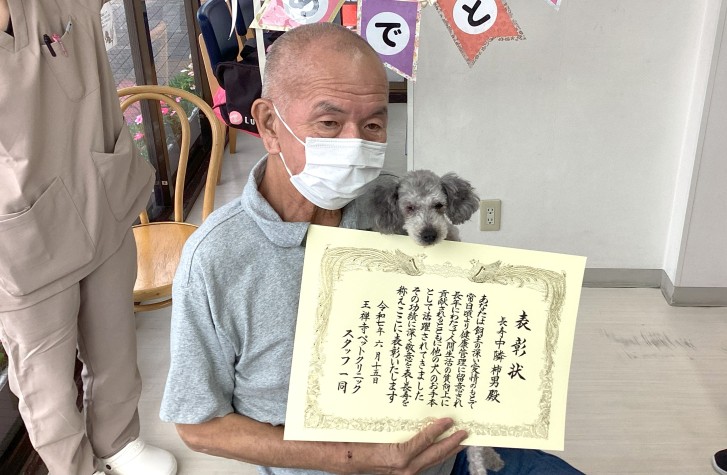 めでと
表彰状
長寿 中隣 柿男 殿
あなたは飼主の深い愛情のもとで
常日頃より健康管理に留意され
長年にわたって人間生活の質向上に
貢献されるとともに他の犬のお手本
として活躍されてきました
その功績に深く敬意を表し長寿を
称えここに表彰いたします
令和七年 六月十五日
王禅寺ペットクリニック
スタッフ一同